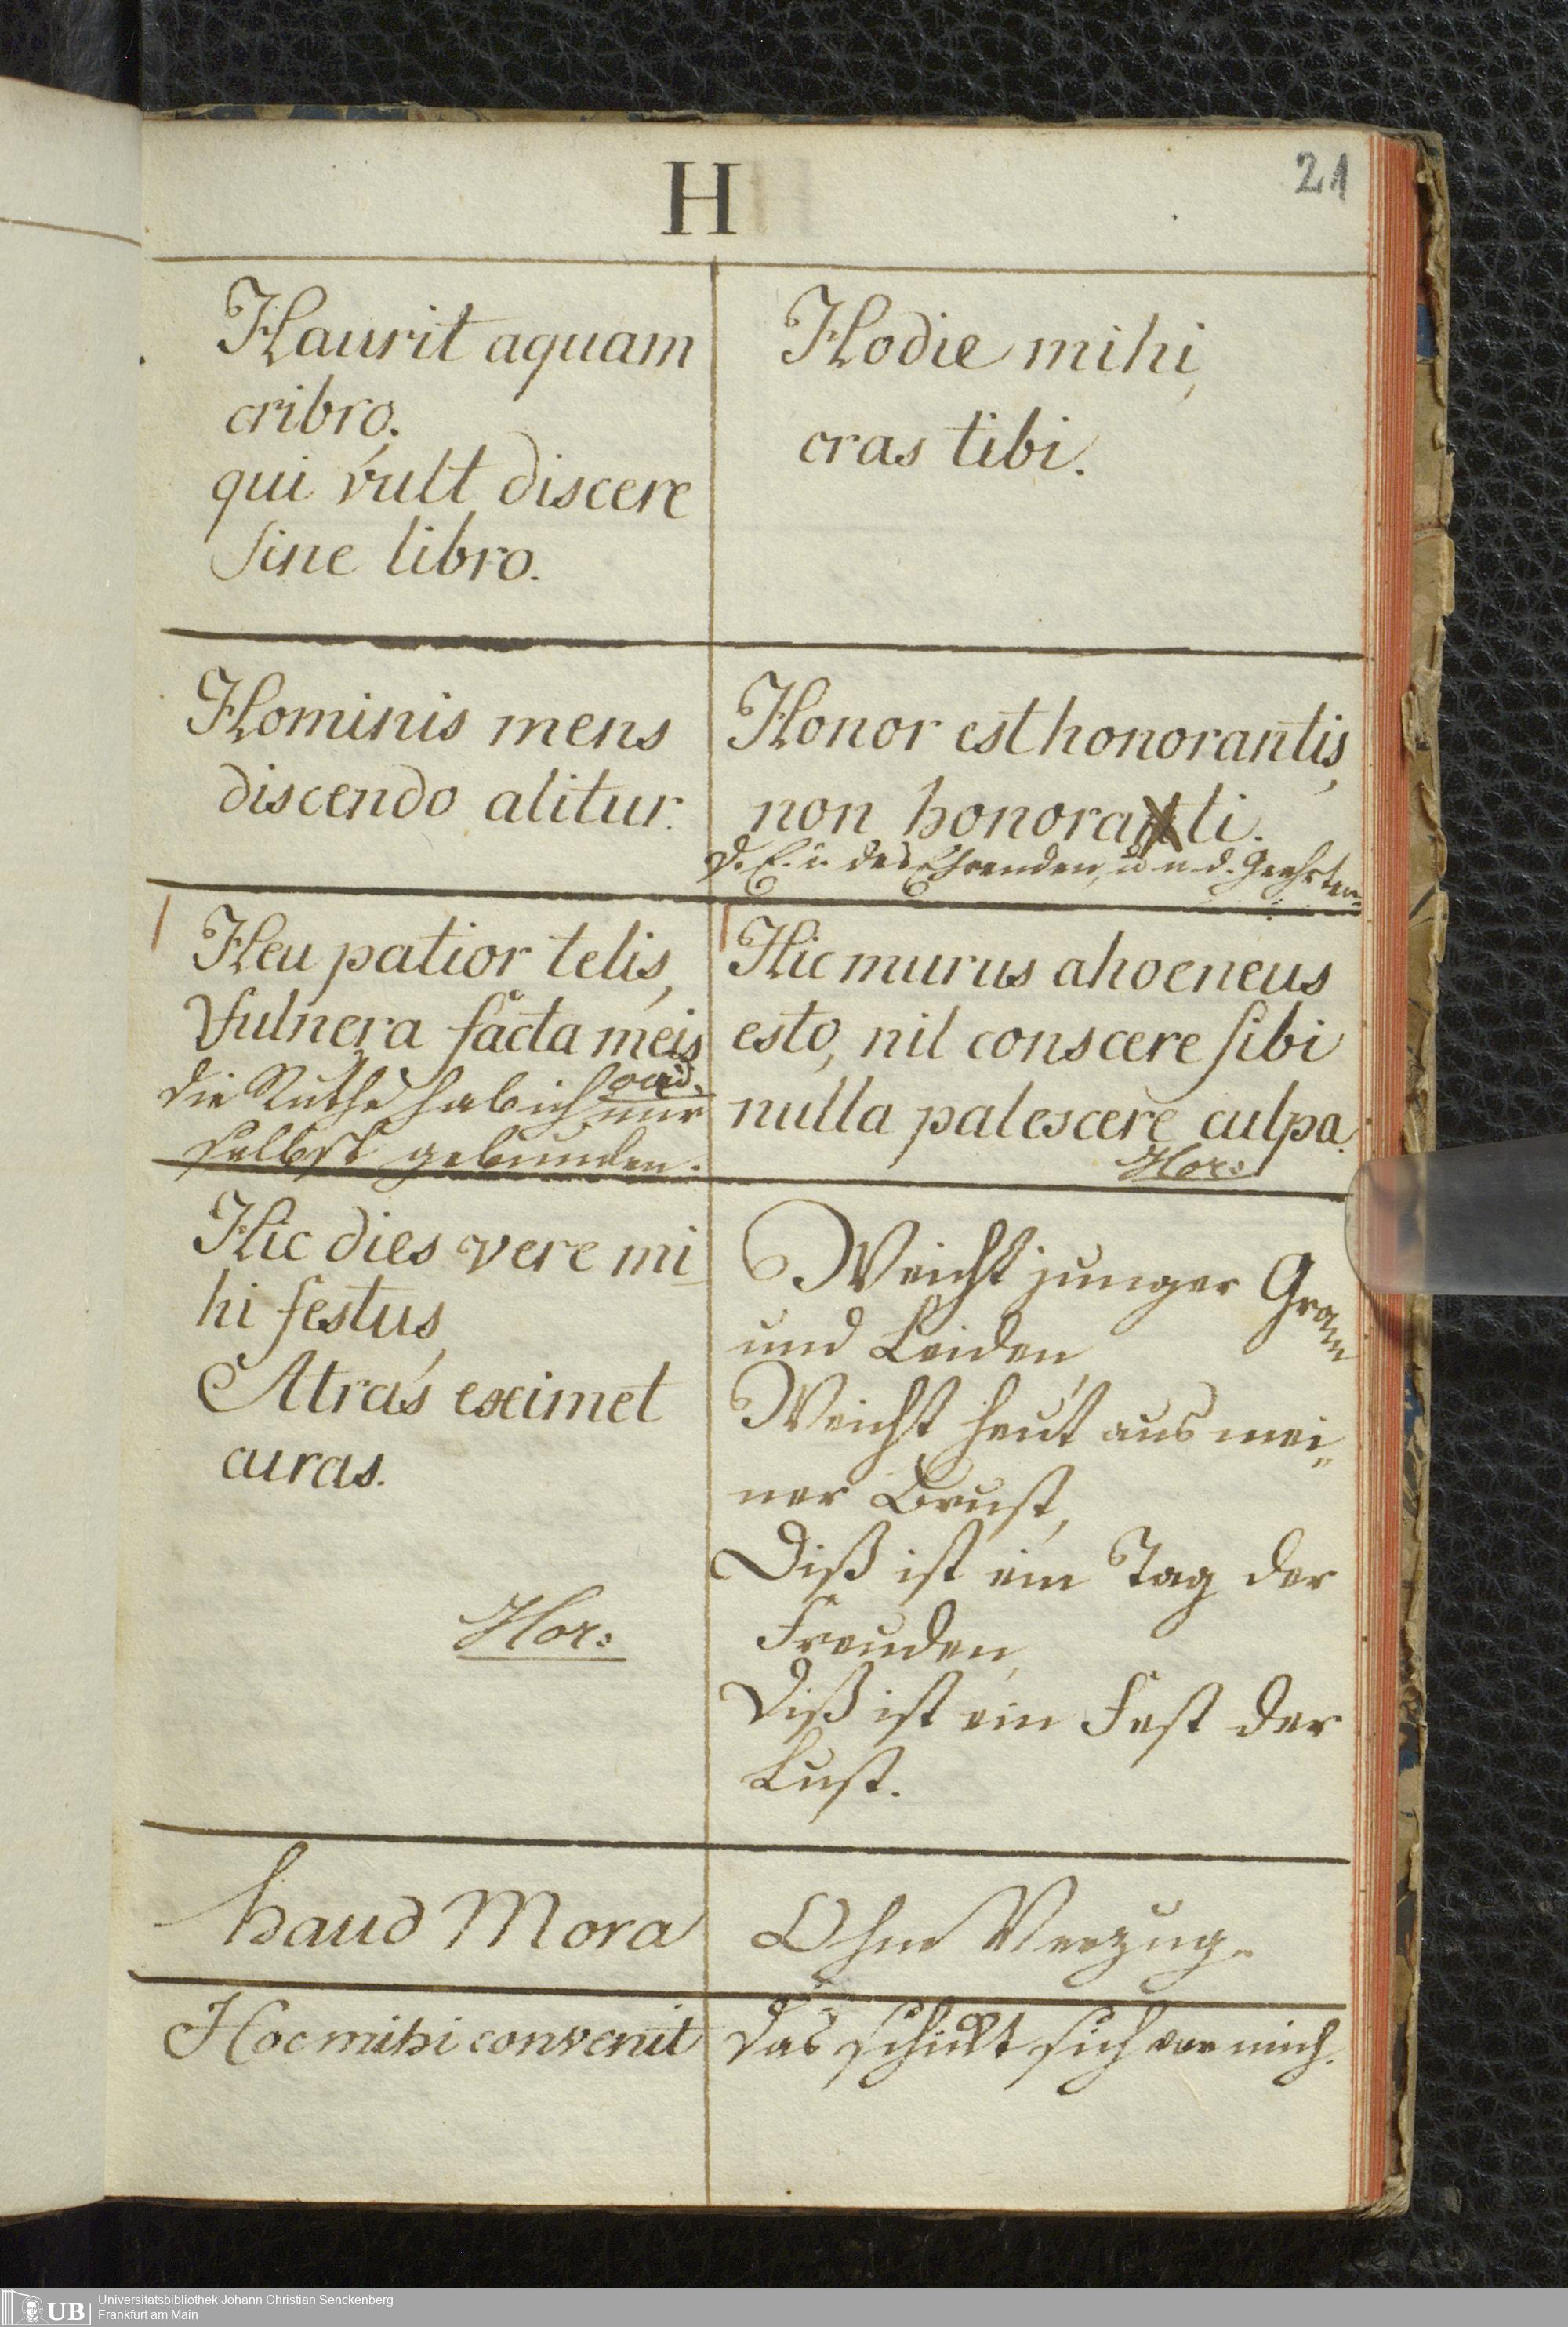 H
21
Haurit aquam
cribro.
qui vult discere
sine libro.
Hodie mihi,
cras tibi.
Hominis mens
discendo alitur.
Honor est honorantis,
non honorati.
d. E. i. des Ehrenden, u n. d. Geehrten.
Heu patior telis,
Vulnera facta meis
ovid.
die Ruthe hab ich mir
selbst gebunden.
Hic murus ahoeneus
esto, nil conscere sibi
nulla palescere culpa.
Hor:
Hic dies vere mi
hi festus,
Atras eximet
curas.
Hor:
Weicht junger Gram
und Leiden
Weicht heut aus mei„
ner Brust,
Diß ist ein Tag der
Freuden,
Diß ist ein Fest der
Lust.
haud Mora
Ohne Verzug.
Hoc mihi convenit
das schickt sich vor mich.
UB
Universitätsbibliothek Johann Christian Senckenberg
Frankfurt am Main